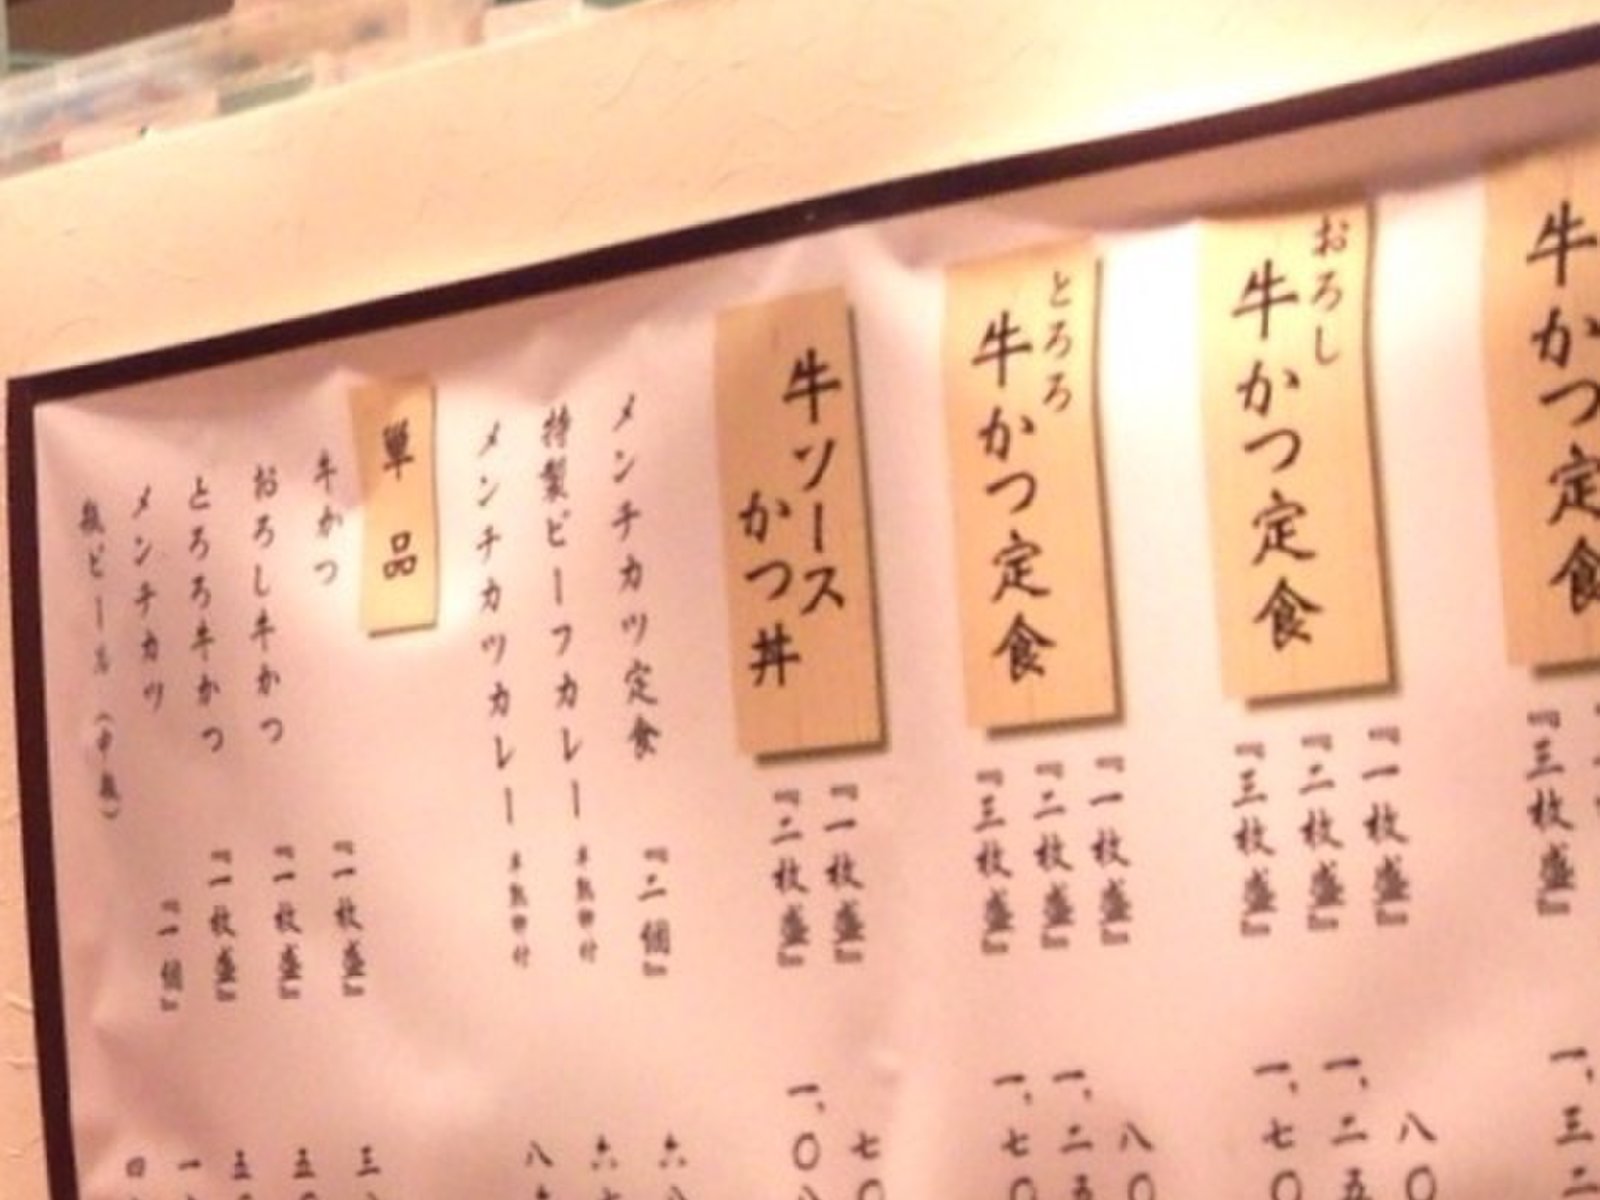 牛かつ定食
『三枚盛』
一、三二
おろし
牛かつ定食
『一枚盛』
八〇
『二枚盛』
一、二五
『三枚盛』
一、七〇
とろろ
牛かつ定食
『一枚盛』
八〇
『二枚盛』
一、二五
『三枚盛』
一、七〇
牛ソース
かつ丼
『一枚盛』
七〇
『二枚盛』
一、〇
メンチカツ定食
『二個』
六
特製ビーフカレー
半熟卵付
六
メンチカツカレー
半熟卵付
八
単品
牛かつ
『一枚盛』
三
おろし牛かつ
『一枚盛』
五
とろろ牛かつ
『一枚盛』
五
メンチカツ
『一個』
一
瓶ビール（中瓶）
四